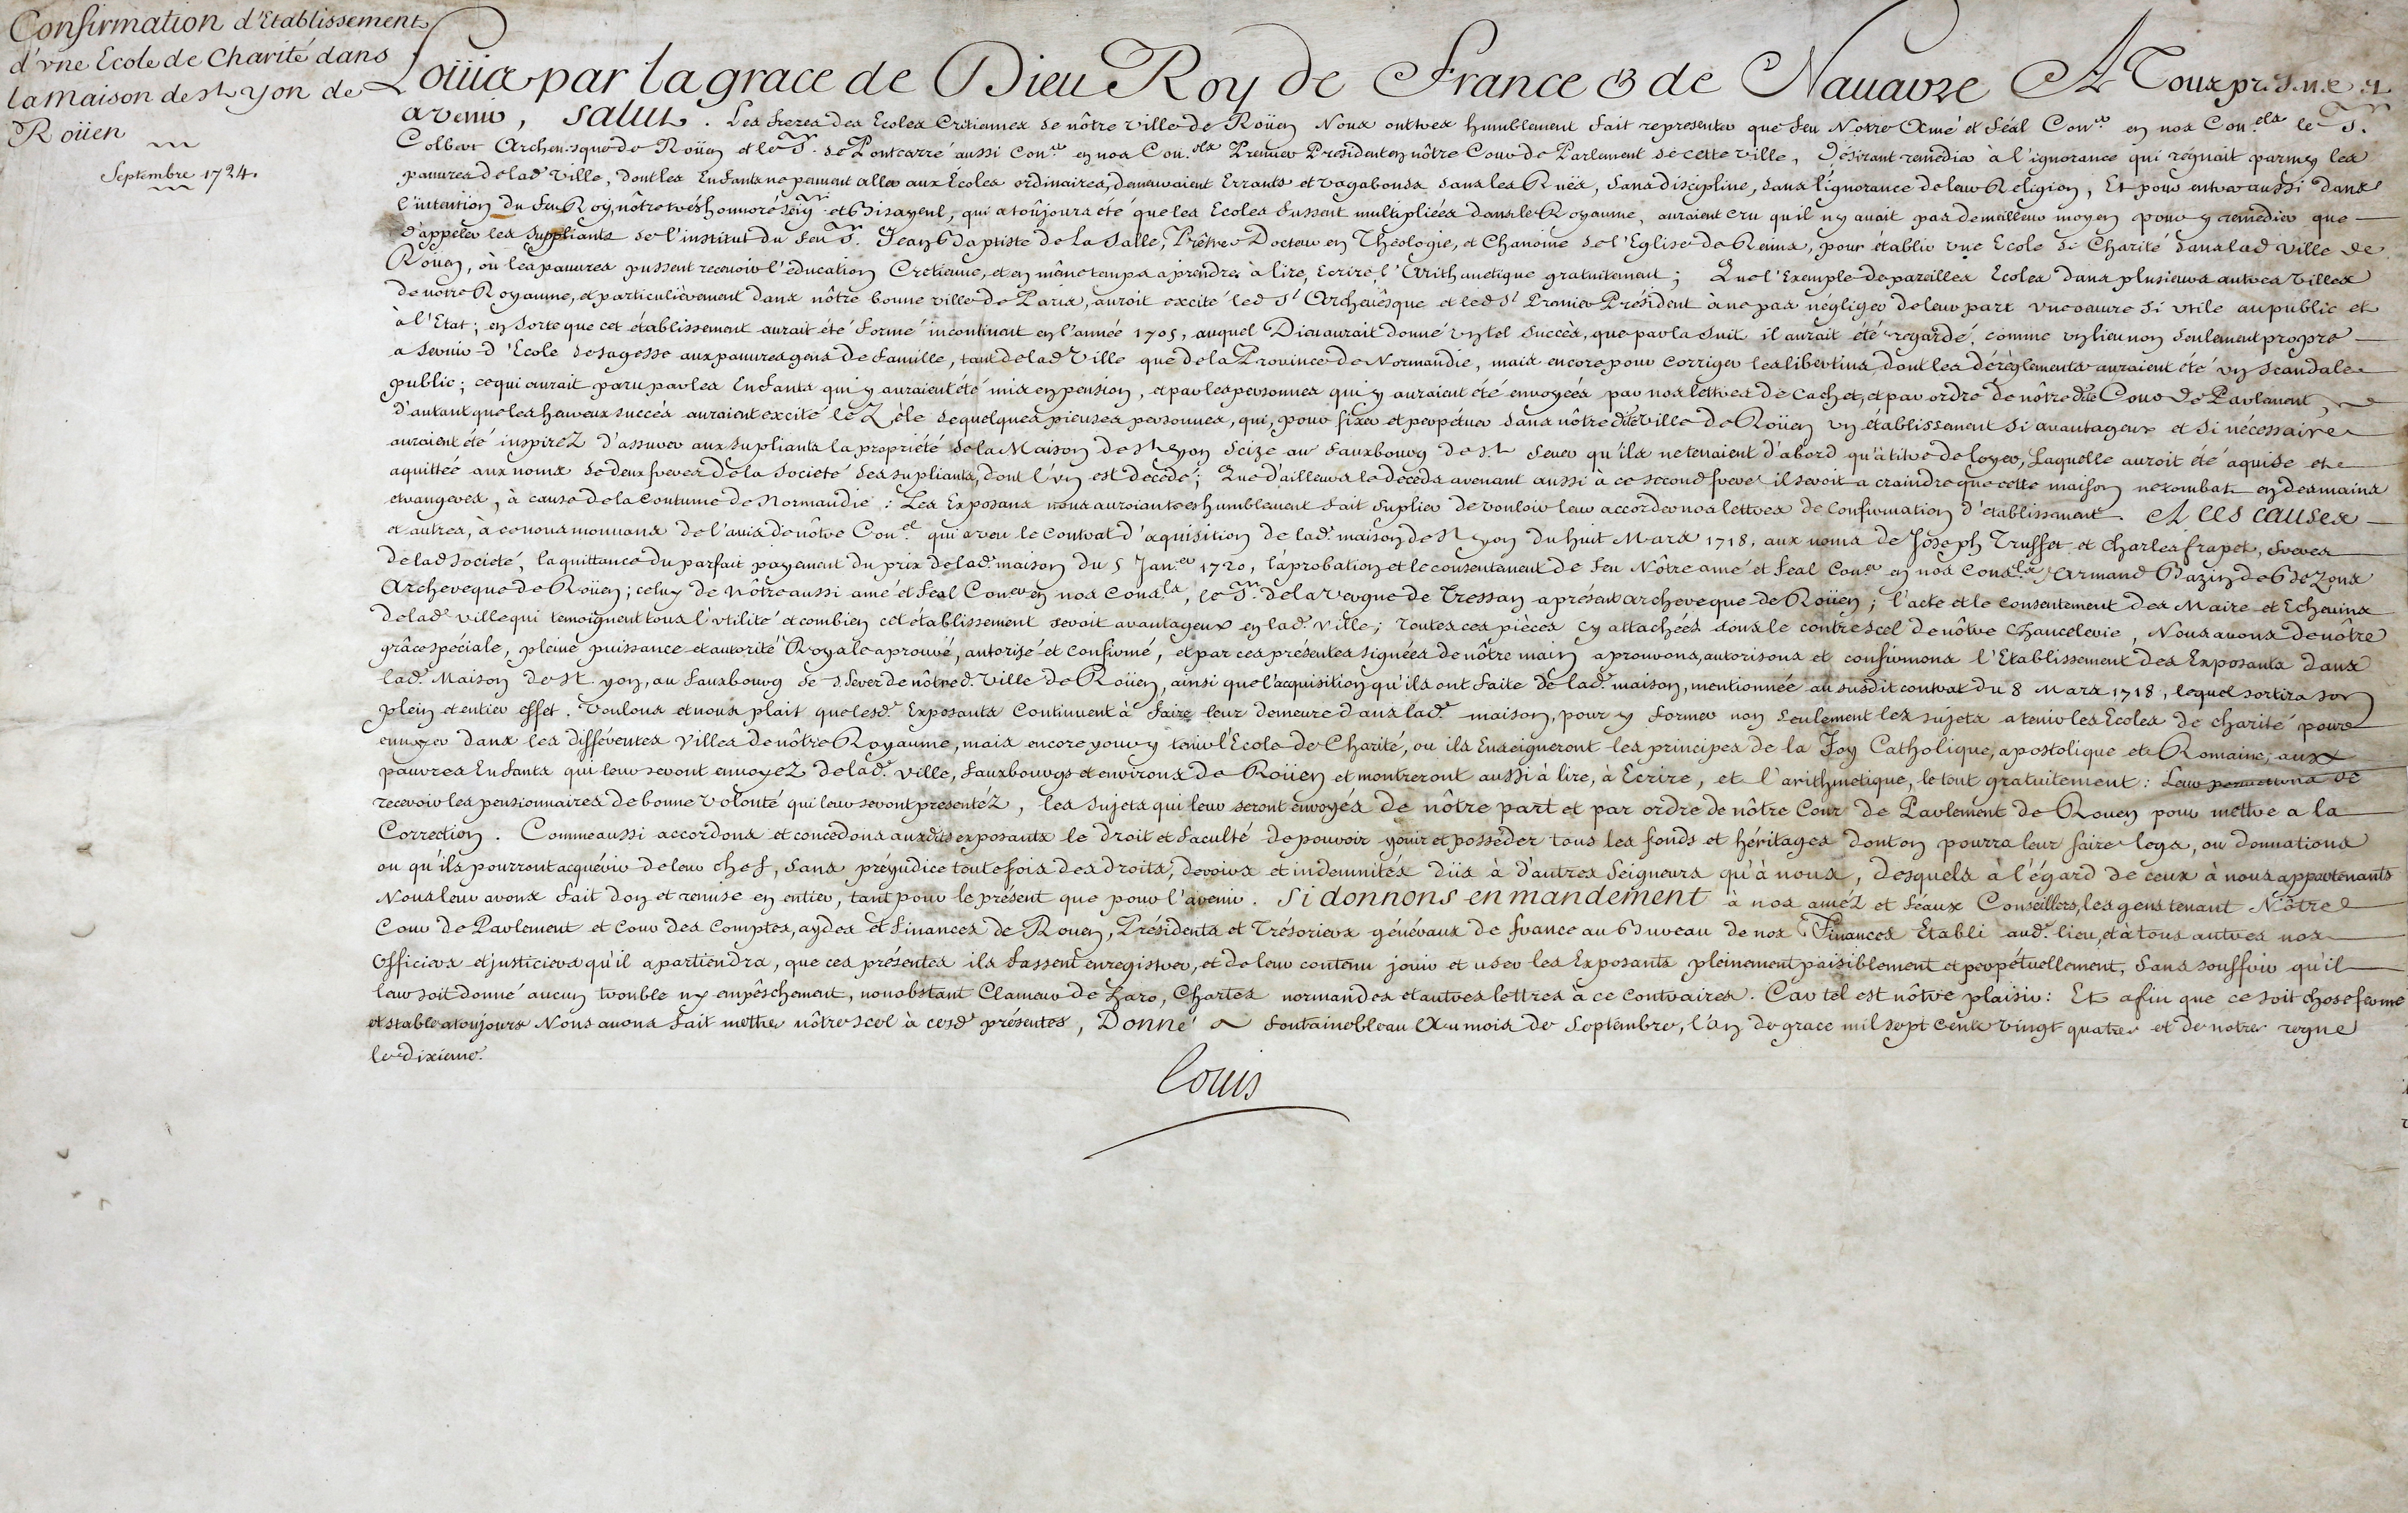 Confirmation d'Etablissement
d'vne Ecole de Charité dans
la Maison de St yon de
Roüen
Septembre 1724.
Loüis par la grace de Dieu Roy de France & de Nauarre A Tous presens et
avenir, Salut. Les freres des Ecoles Cretiennes de nôtre ville de Roüen Nous ont tres humblement fait representer que feu Notre Amé et féal Coner en nos Conels le Sr.
Colbert Archeuesque de Roüen et le Sr. de Pontcarré aussi Coner en nos Conels Premier President en nôtre Cour de Parlement de cette ville, Désirant remedier à l'ignorance qui régnait parmy les
pauures de lad. ville, dont les Enfants ne peuuent aller aux Ecoles ordinaires, demeuraient Errants et vagabonds dans les Ruës, sans discipline, dans l'ignorance de leur Religion, Et pour entrer aussi dans
l'intention du feu Roy, nôtre tres honnoré Seigr. et Bisayeul, qui a toûjours été que les Ecoles fussent multipliées dans le Royaume, auraient cru qu'il n'y auait pas de meilleur moyen pour y remedier que
d'appeler les suppliants de l'institut du feu Sr. Jean Baptiste de La Salle, Prêtre Docteur en Théologie, et Chanoine de l'Eglise de Reims, pour établir vne Ecole de Charité dans lad ville de
Roüen, où les pauures pussent receuoir l'éducation Cretienne, et en même temps aprendre à lire, Ecrire l'Arithmetique gratuitement; Que l'Exemple de pareilles Ecoles dans plusieurs autres villes
de notre Royaume, et particulièrement dans nôtre bonne ville de Paris, auroit excité led. St Archeuêsque et led. St Premier Président à ne pas négliger de leur part vne oeuure si vtile au public et
à l'Etat; en sorte que cet établissement aurait été formé incontinent en l'année 1705, auquel Dieu aurait donné vn tel succès, que par la suit il aurait été regardé, comme vn lieu non seulement propre
a seruir d'Ecole de sagesse aux pauures gens de famille, tant de lad Ville que de la Prouince de Normandie, mais encore pour corriger les libertins, dont les dérèglements auraient été vn scandale
public; ce qui aurait paru par les Enfants qui y auraient été mis en pension, et par les personnes qui y auraient été enuoyées par nos lettres de cachet, et par ordre de nôtre dite Cour de Parlement,
d'autant que les heureux succés auraient excité le Zèle de quelques pieuses personnes, qui, pour fixer et perpétuer dans nôtre dite ville de Roüen vn établissement si auantageux et si nécessaire
auraient été inspirez d'assurer aux supliants la propriété de la Maison de St yon Seize au fauxbourg de St Seuer qu'ils ne tenaient d'abord qu'à titre de loyer, Laquelle auroit été aquise et
aquittée aux noms de deux freres de la Societé des supliants, dont l'vn est décédé; Que d'ailleurs le décéds avenant aussi à ce second frere il seroit a craindre que cette maison ne tombat en des mains
etrangeres, à cause de la Coutume de Normandie: Les Exposans nous auroiant tres humblement fait suplier de vouloir leur accorder nos lettres de Confirmation d'établissement. A ces causes
et autres, à ce nous mouuans de l'auis de nôtre Conel qui a veu le Contrat d'aquisition de lad. maison de St yon du huit Mars 1718, aux noms de Joseph Truffet et Charles frapet, freres
de lad Societé, la quittance du parfait payement du prix de lad. maison du 5 Janer 1720, l'aprobation et le consentement de feu Nôtre amé et feal Coner en nos Consls Armand Bazin de Bezons
Archeveque de Roüen; celuy de Nôtre aussi amé et feal Coner en nos Consls, le Sr. de la Vergne de Tressan a présent archeveque de Roüen; l'acte et le Consentement des Maire et Echeuins
de lad. ville qui temoignent tous l'vtilité et combien cet établissement seroit avantageux en lad. ville; toutes ces pièces cy attachées sous le contrescel de nôtre Chancelerie, Nous auons de nôtre
grâce spéciale, pleine puissance et autorité Royale aprouvé, autorisé et confirmé, et par ces présentes signées de nôtre main aprouvons, autorisons et confirmons l'Etablissement des Exposants dans
lad. Maison de St yon, au fauxbourg de S. Sever de nôtre d. Ville de Roüen, ainsi que l'acquisition qu'ils ont faite de lad. maison, mentionnée au susdit contrat du 8 Mars 1718, lequel sortira son
plein et entier effet. Voulons et nous plait que lesd. Exposants Continuent à faire leur demeure dans lad. maison, pour y former non seulement les sujets a tenir les Ecoles de charité pour
enuoyer dans les différentes Villes de nôtre Royaume, mais encore pour y tenir l'Ecole de Charité, ou ils Enseigneront les principes de la Foy Catholique, apostolique et Romaine; aux
pauvres Enfants qui leur seront envoyez de lad. ville, fauxbourgs et environs de Roüen et montreront aussi à lire, à Ecrire, et l'arithmetique, le tout gratuitement: Leur permettons de
recevoir les pensionnaires de bonne volonté qui leur seront presentéz, les sujets qui leur seront envoyés de nôtre part et par ordre de nôtre Cour de Parlement de Rouen pour mettre a la
Correction. Comme aussi accordons et concedons auxdits exposants le droit et faculté de pouvoir jouir et posséder tous les fonds et héritages dont on pourra leur faire legs, ou donnations
ou qu'ils pourront acquérir de leur chef, sans préjudice toutefois des droits, devoirs et indemnités düs à d'autres Seigneurs qu'à nous, desquels à l'égard de ceux à nous appartenants
Nous leur avons fait don et remise en entier, tant pour le présent que pour l'avenir. Si donnons en mandement à nos améz et féaux Conseillers, les gens tenant Nôtre
Cour de Parlement et Cour des Comptes, aydes et finances de Rouen, Présidents et Trésoriers généraux de france au Bureau de nos Finances Etabli aud. lieu, et à tous autres nos
Officiers et justiciers qu'il apartiendra, que ces présentes ils fassent enregistrer, et de leur contenu jouir et user les Exposants pleinement paisiblement et perpétuellement, sans souffrir qu'il
leur soit donné aucun trouble ny empêschement, nonobstant Clameur de haro, Chartes normandes et autres lettres à ce contraires. Car tel est nôtre plaisir: Et afin que ce soit chose ferme
et stable a toujours Nous auons fait mettre nôtre scel à cesd. présentes, Donné a fontainebleau Au mois de Septembre, l'an de grace mil sept cents vingt quatre et de notre regne
le dixieme.
Louis